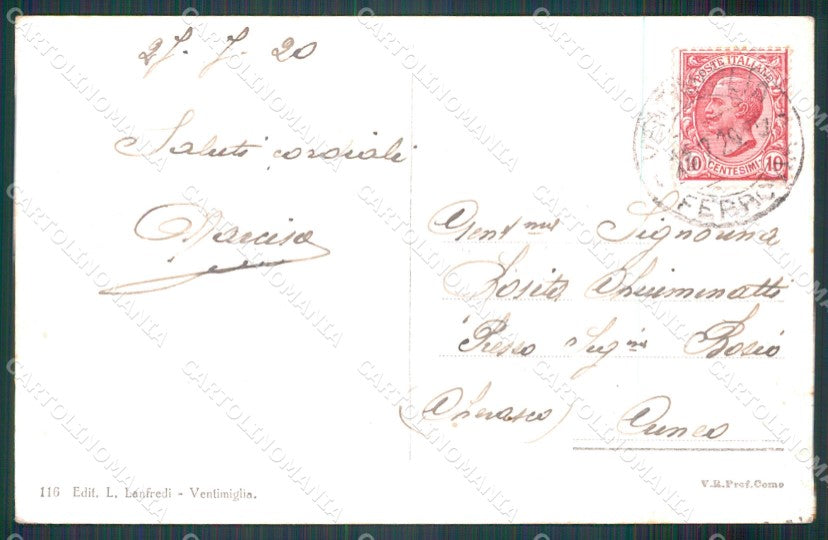 27. 7. 20
Saluti cordiali
Narcisa
Gent.ma Signorina
Rosita
Presso Sig.na Bosio
(Cherasco) Cuneo
POSTE ITALIANE
10 CENTESIMI 10
116 Edit. L. Lanfredi - Ventimiglia.
V.R.Pref.Como
CARTOLINOMANIA